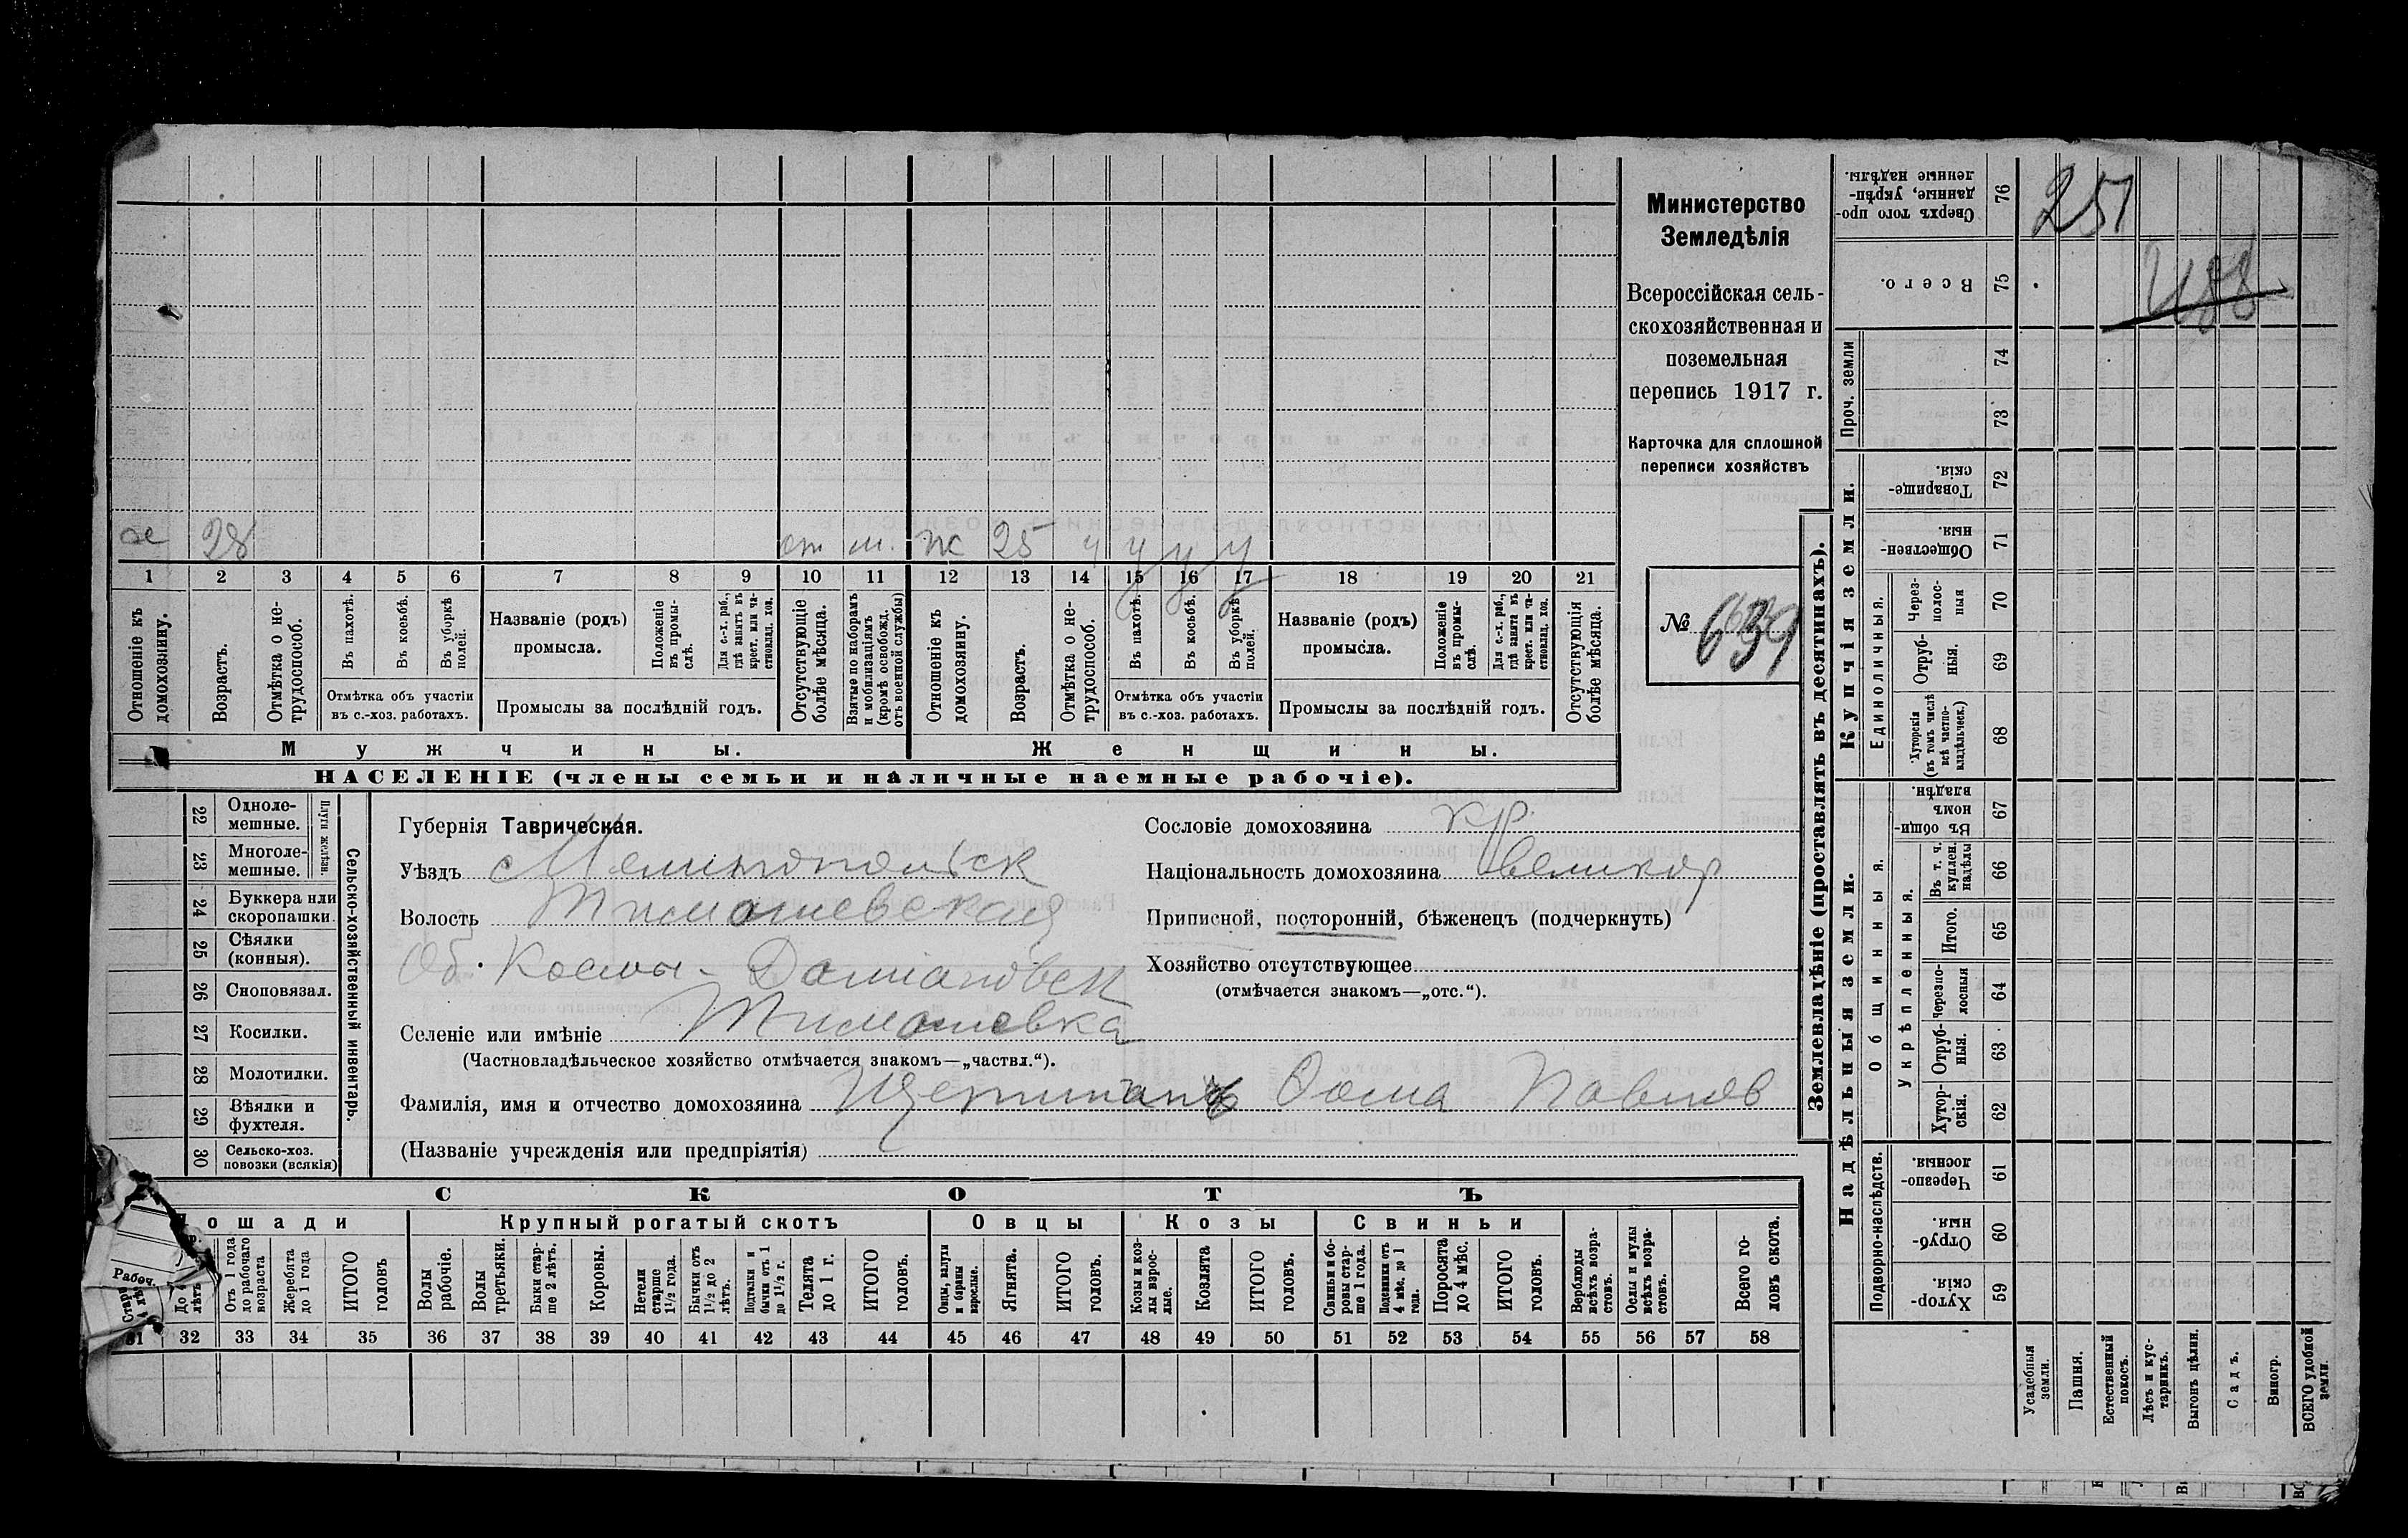 Министерство
Земледѣлія
Всероссійская сель-
скохозяйственная и
поземельная
перепись 1917 г.
Карточка для сплошной
переписи хозяйствъ
№ 639
х 28 от м. ж 25 ч у у у
1 2 3 4 5 6 7 8 9 10 11 12 13 14 15 16 17 18 19 20 21
Отношеніе къ домохозяину.
Возрастъ.
Отмѣтка о не-трудоспособ.
Въ пахотѣ.
Въ косьбѣ.
Въ уборкѣ полей.
Отмѣтка объ участіи
въ с.-хоз. работахъ.
Названіе (родъ)
промысла.
Положеніе въ промы-слѣ.
Для с.-х. раб., гдѣ занятъ въ крест. или ча-стновлад. хоз.
Промыслы за послѣдній годъ.
Отсутствующіе болѣе мѣсяца.
Взятые по наборамъ и мобилизаціямъ (кромѣ освобожд. отъ военной службы)
Отношеніе къ домохозяину.
Возрастъ.
Отмѣтка о не-трудоспособ.
Въ пахотѣ.
Въ косьбѣ.
Въ уборкѣ полей.
Отмѣтка объ участіи
въ с.-хоз. работахъ.
Названіе (родъ)
промысла.
Положеніе въ промы-слѣ.
Для с.-х. раб., гдѣ занята въ крест. или ча-стновлад. хоз.
Промыслы за послѣдній годъ.
Отсутствующія болѣе мѣсяца.
Мужчины.
Женщины.
НАСЕЛЕНІЕ (члены семьи и наличные наемные рабочіе).
22 Одноле-мешные.
23 Многоле-мешные.
Плуги желѣзн.
24 Буккера или скоропашки.
25 Сѣялки (конныя).
26 Сноповязал.
27 Косилки.
28 Молотилки.
29 Вѣялки и фухтеля.
30 Сельско-хоз. повозки (всякія)
Сельско-хозяйственный инвентарь.
Губернія Таврическая.
Уѣздъ Мелитопольск
Волость Тимошевская
Об. Космы-Даміановск
Селеніе или имѣніе Тимошевка
(Частновладѣльческое хозяйство отмѣчается знакомъ—„частвл.“).
Фамилія, имя и отчество домохозяина Фома Павлов
(Названіе учрежденія или предпріятія)
Сословіе домохозяина кр.
Національность домохозяина великор
Приписной, посторонній, бѣженецъ (подчеркнуть)
Хозяйство отсутствующее
(отмѣчается знакомъ—„отс.“).
СКОТЪ
Лошади
Крупный рогатый скотъ
Овцы
Козы
Свиньи
Рабоч.
Отъ 1 года до рабочаго возраста
Жеребята до 1 года
ИТОГО головъ
Волы рабочіе.
Волы третьяки.
Быки стар-ше 2 лѣтъ.
Коровы.
Нетели старше 1½ года.
Бычки отъ 1½ до 2 лѣтъ.
Подтелки и бычки отъ 1 до 1½ г.
Телята до 1 г.
ИТОГО головъ.
Овцы, валухи и бараны взрослые.
Ягнята.
ИТОГО головъ.
Козы и коз-лы взрос-лые.
Козлята
ИТОГО головъ.
Свиньи и бо-ровы стар-ше 1 года.
Подсвинки отъ 4 мѣс. до 1 года.
Поросята до 4 мѣс.
ИТОГО головъ.
Верблюды всѣхъ возра-стовъ.
Ослы и мулы всѣхъ возра-стовъ.
Всего го-ловъ скота.
31 32 33 34 35 36 37 38 39 40 41 42 43 44 45 46 47 48 49 50 51 52 53 54 55 56 57 58
Землевладѣніе (проставлять въ десятинахъ).
Купчія земли.
Надѣльныя земли.
Сверхъ того про-данные, укрѣп-ленные надѣлы. 76
251
Всего. 75
488
Проч. земли 74
73
Товарище-скія. 72
Обществен-ныя 71
Единоличныя.
Через-полос-ныя 70
Отруб-ныя. 69
Хуторскія (въ томъ числѣ всѣ частно-владѣльческ.) 68
Общинныя.
Въ общи-номъ владѣн. 67
Укрѣпленныя.
Въ т. ч. куплен. надѣлы 66
Итого. 65
Черезпо-лосныя 64
Отруб-ныя. 63
Хутор-скія. 62
Подворно-наслѣдств.
Черезпо-лосныя. 61
Отруб-ныя. 60
Хутор-скія. 59
Усадебныя земли.
Пашня.
Естественный покосъ.
Лѣсъ и кус-тарникъ.
Выгонъ цѣлин.
Садъ.
Виногр.
ВСЕГО удобной земли.